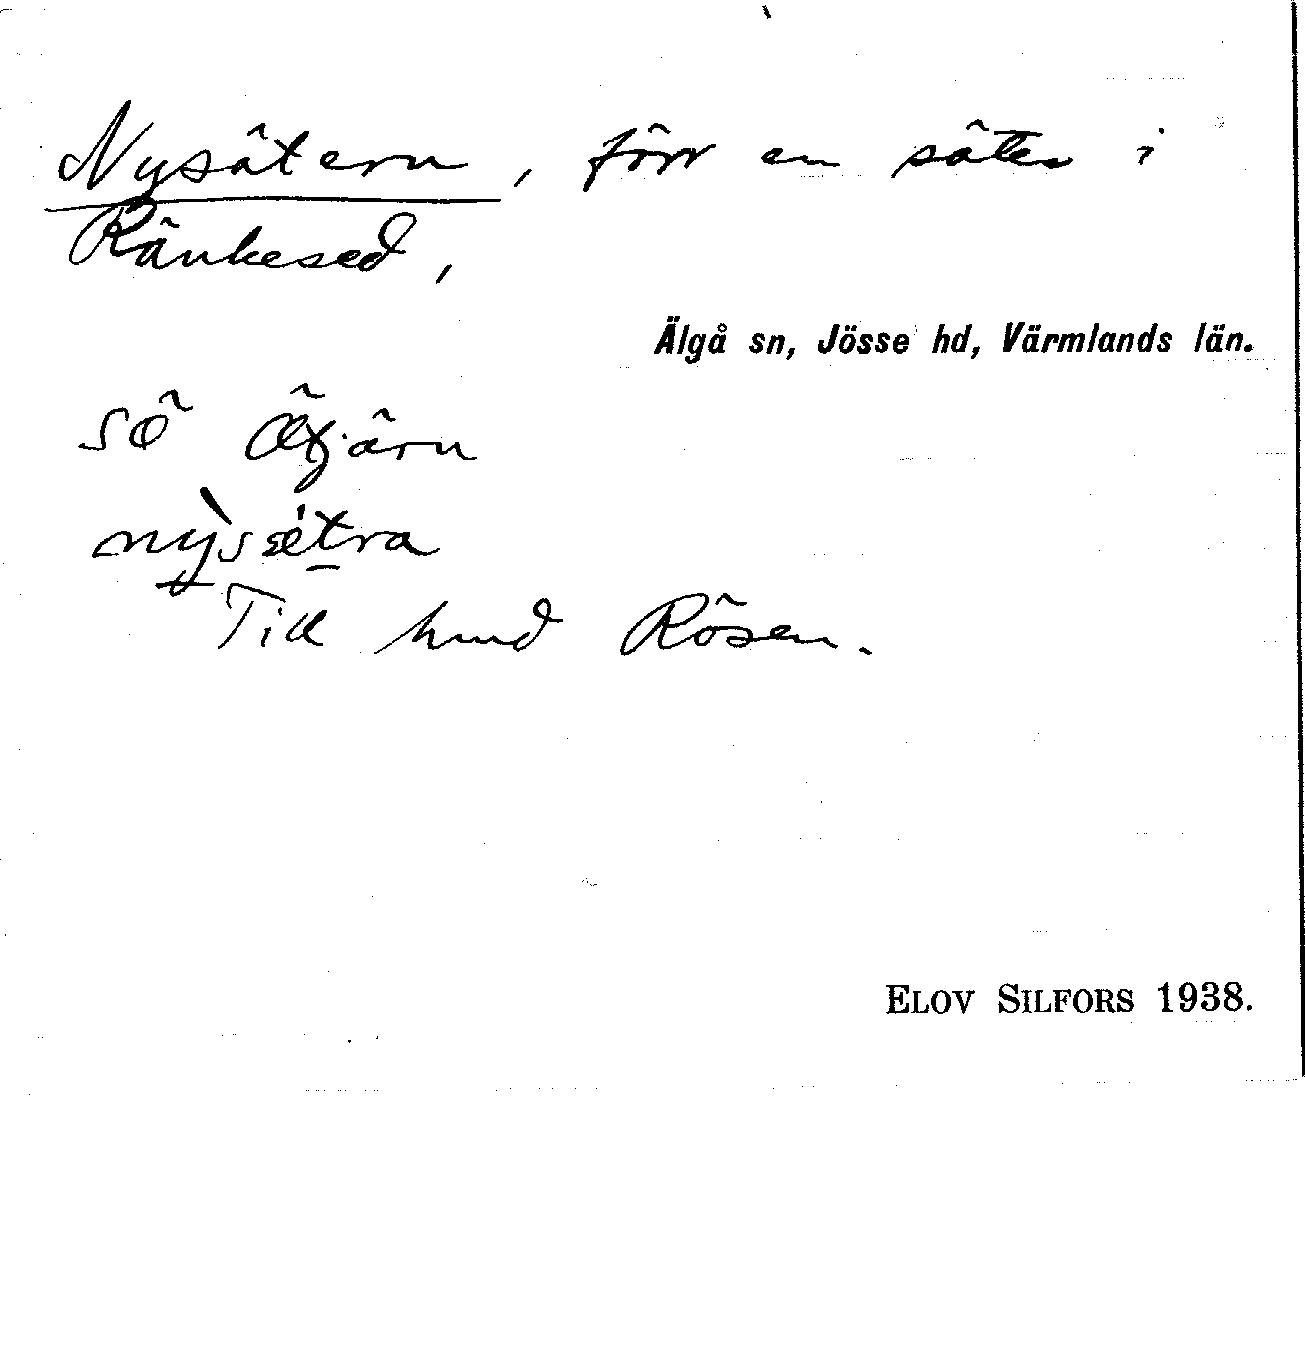 Nysätern, förr en säter i
Ränkesed,
Älgå sn, Jösse hd, Värmlands län.
SÖ Ötjärn
nỳssétra
Till hmd Rösen.
ELOV SILFORS 1938.